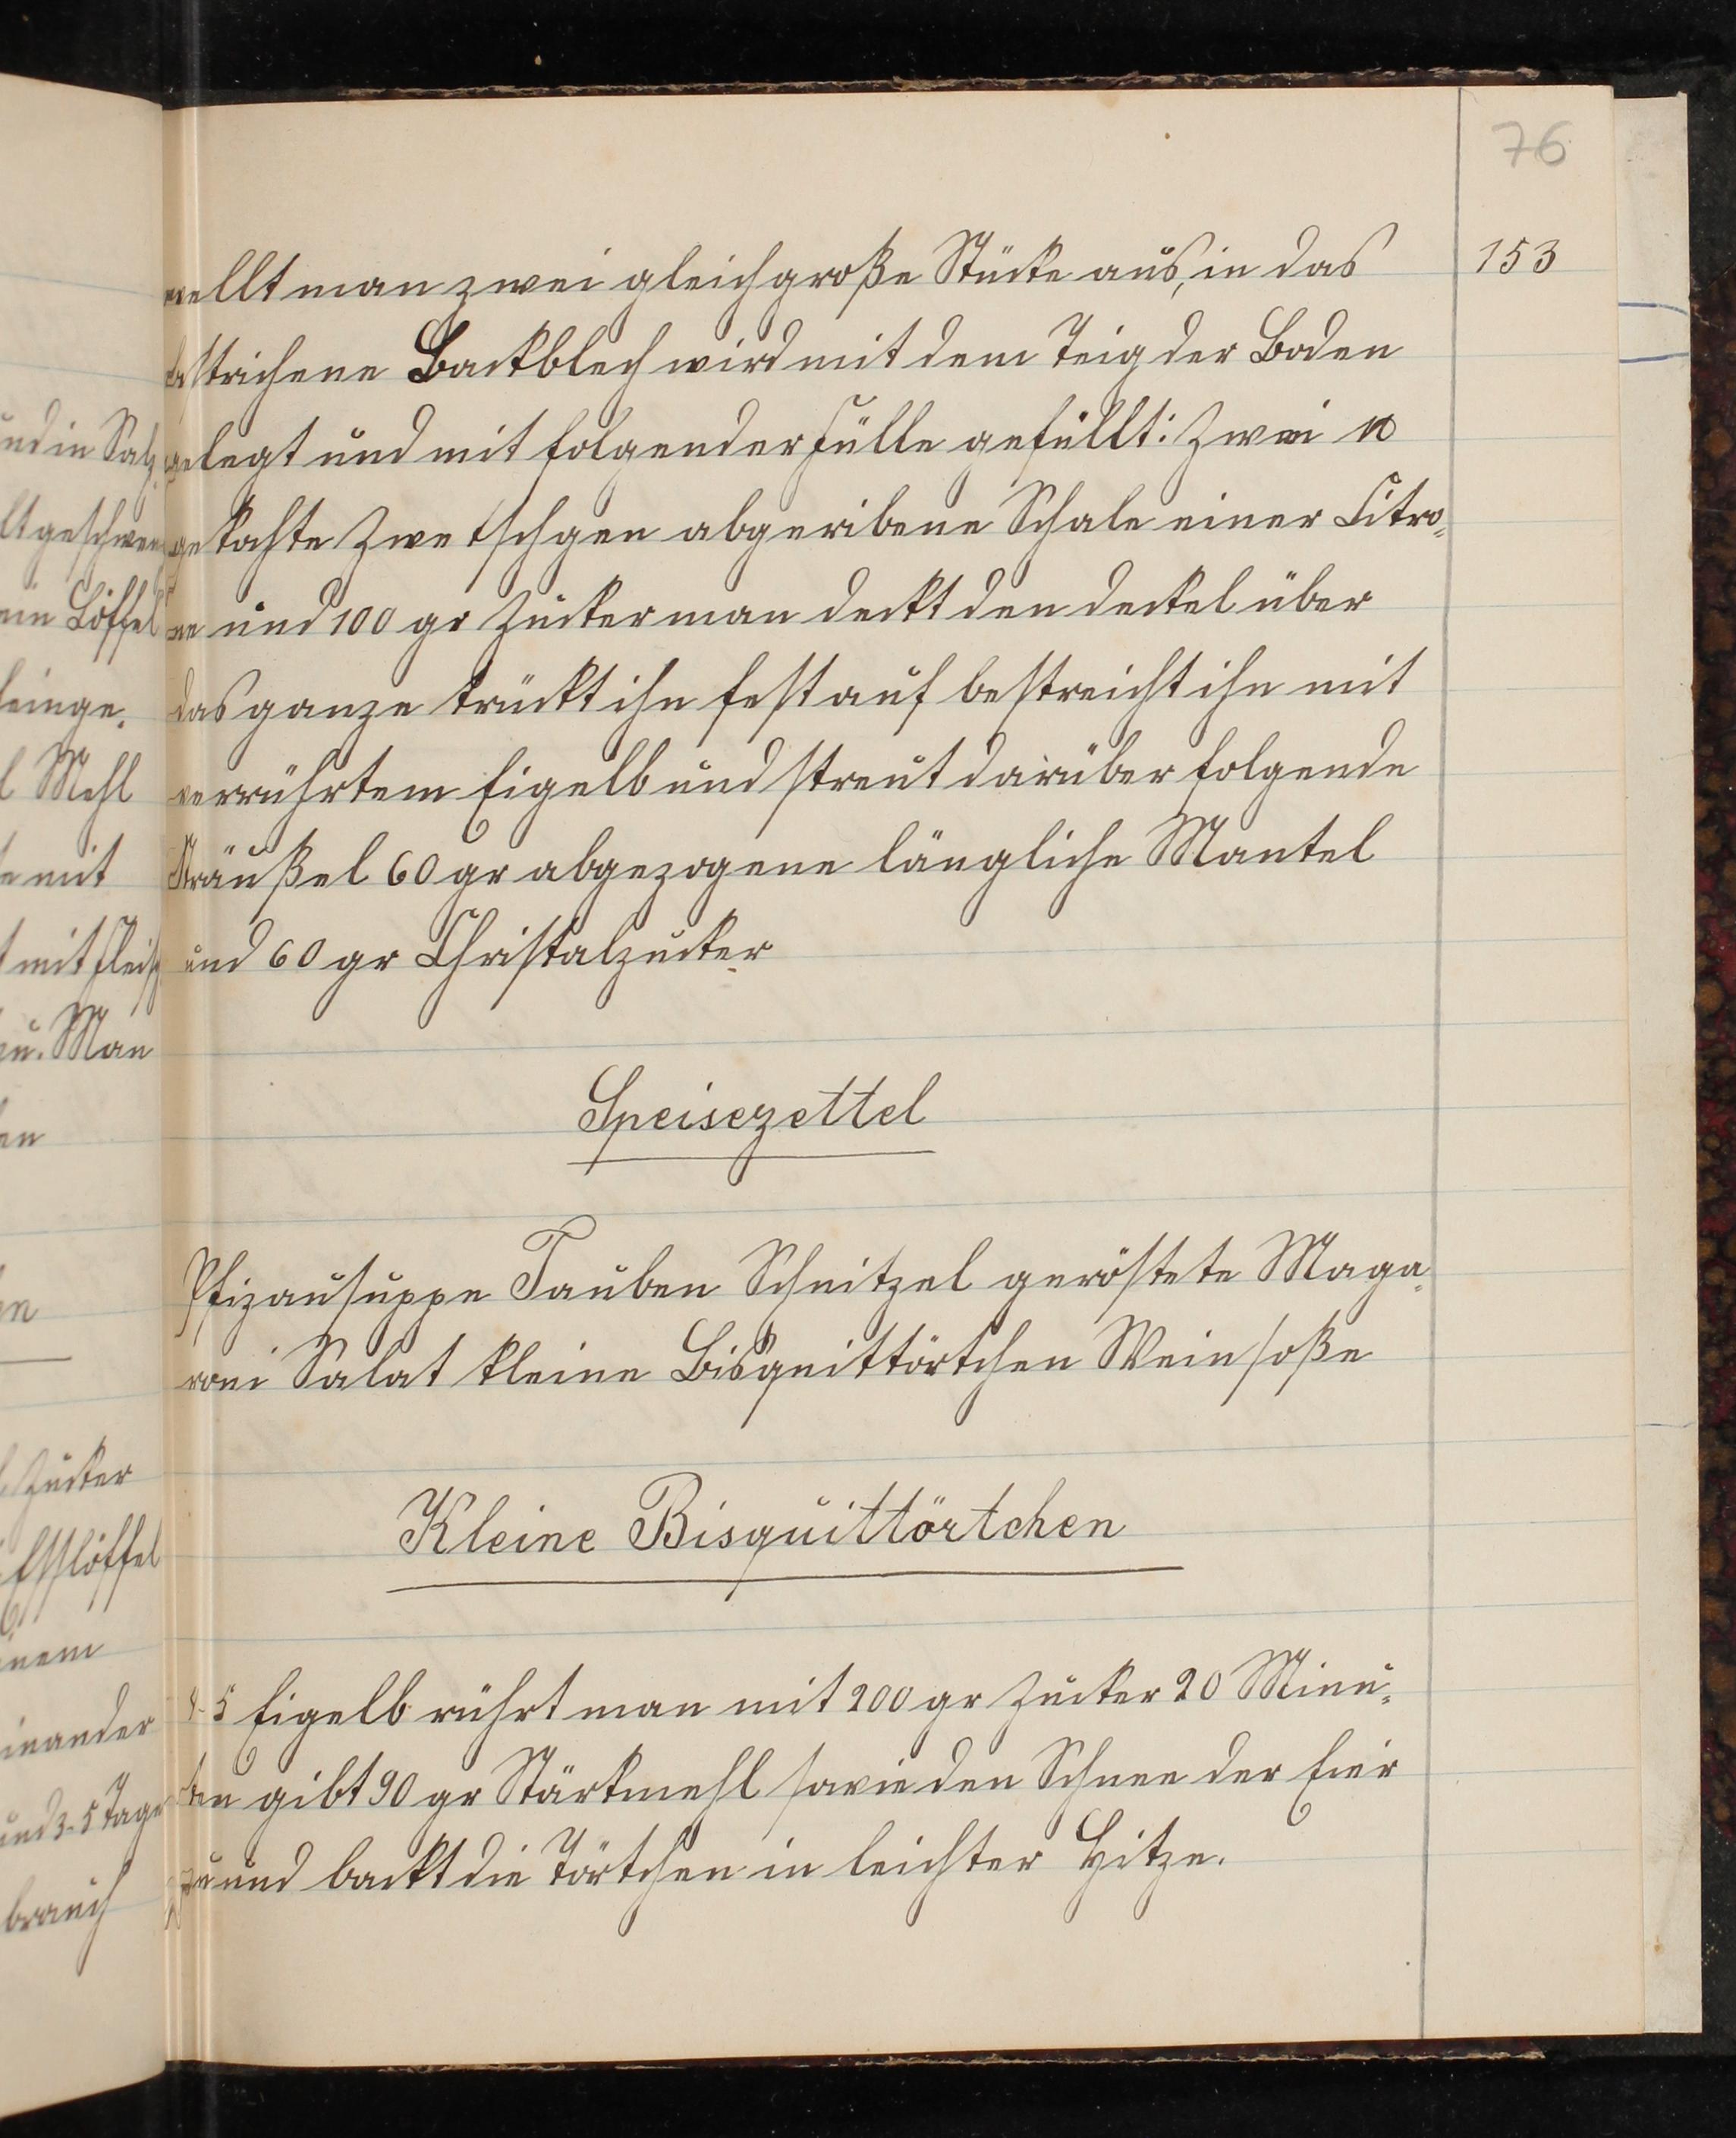 76
153
wellt man zwei gleichgroße Stücke aus, in das
bestrichene Backblech wird mit dem Teig der Boden
gelegt und mit folgender Fülle gefüllt: Zwei ℔
gekochte Zwetschgen abgeribene Schale einer Citro-
ne und 100 gr Zucker man deckt den deckel über
das ganze trückt ihn fest auf bestreicht ihn mit
verrührtem Eigelb und streut darüber folgende
Sträußel 60 gr abgezogene längliche Mantel
und 60 gr Christalzucker
Speisezettel
Pfizaufsuppe Tauben Schnitzel geröstete Maga-
roni Salat kleine Bisquittörtchen Weinsoße
Kleine Bisquittörtchen
4-5 Eigelb rührt man mit 200 gr Zucker 20 Minu-
ten gibt 90 gr Stärkmehl sowie den Schnee der Eier
zu und backt die Törtchen in leichter Hitze.